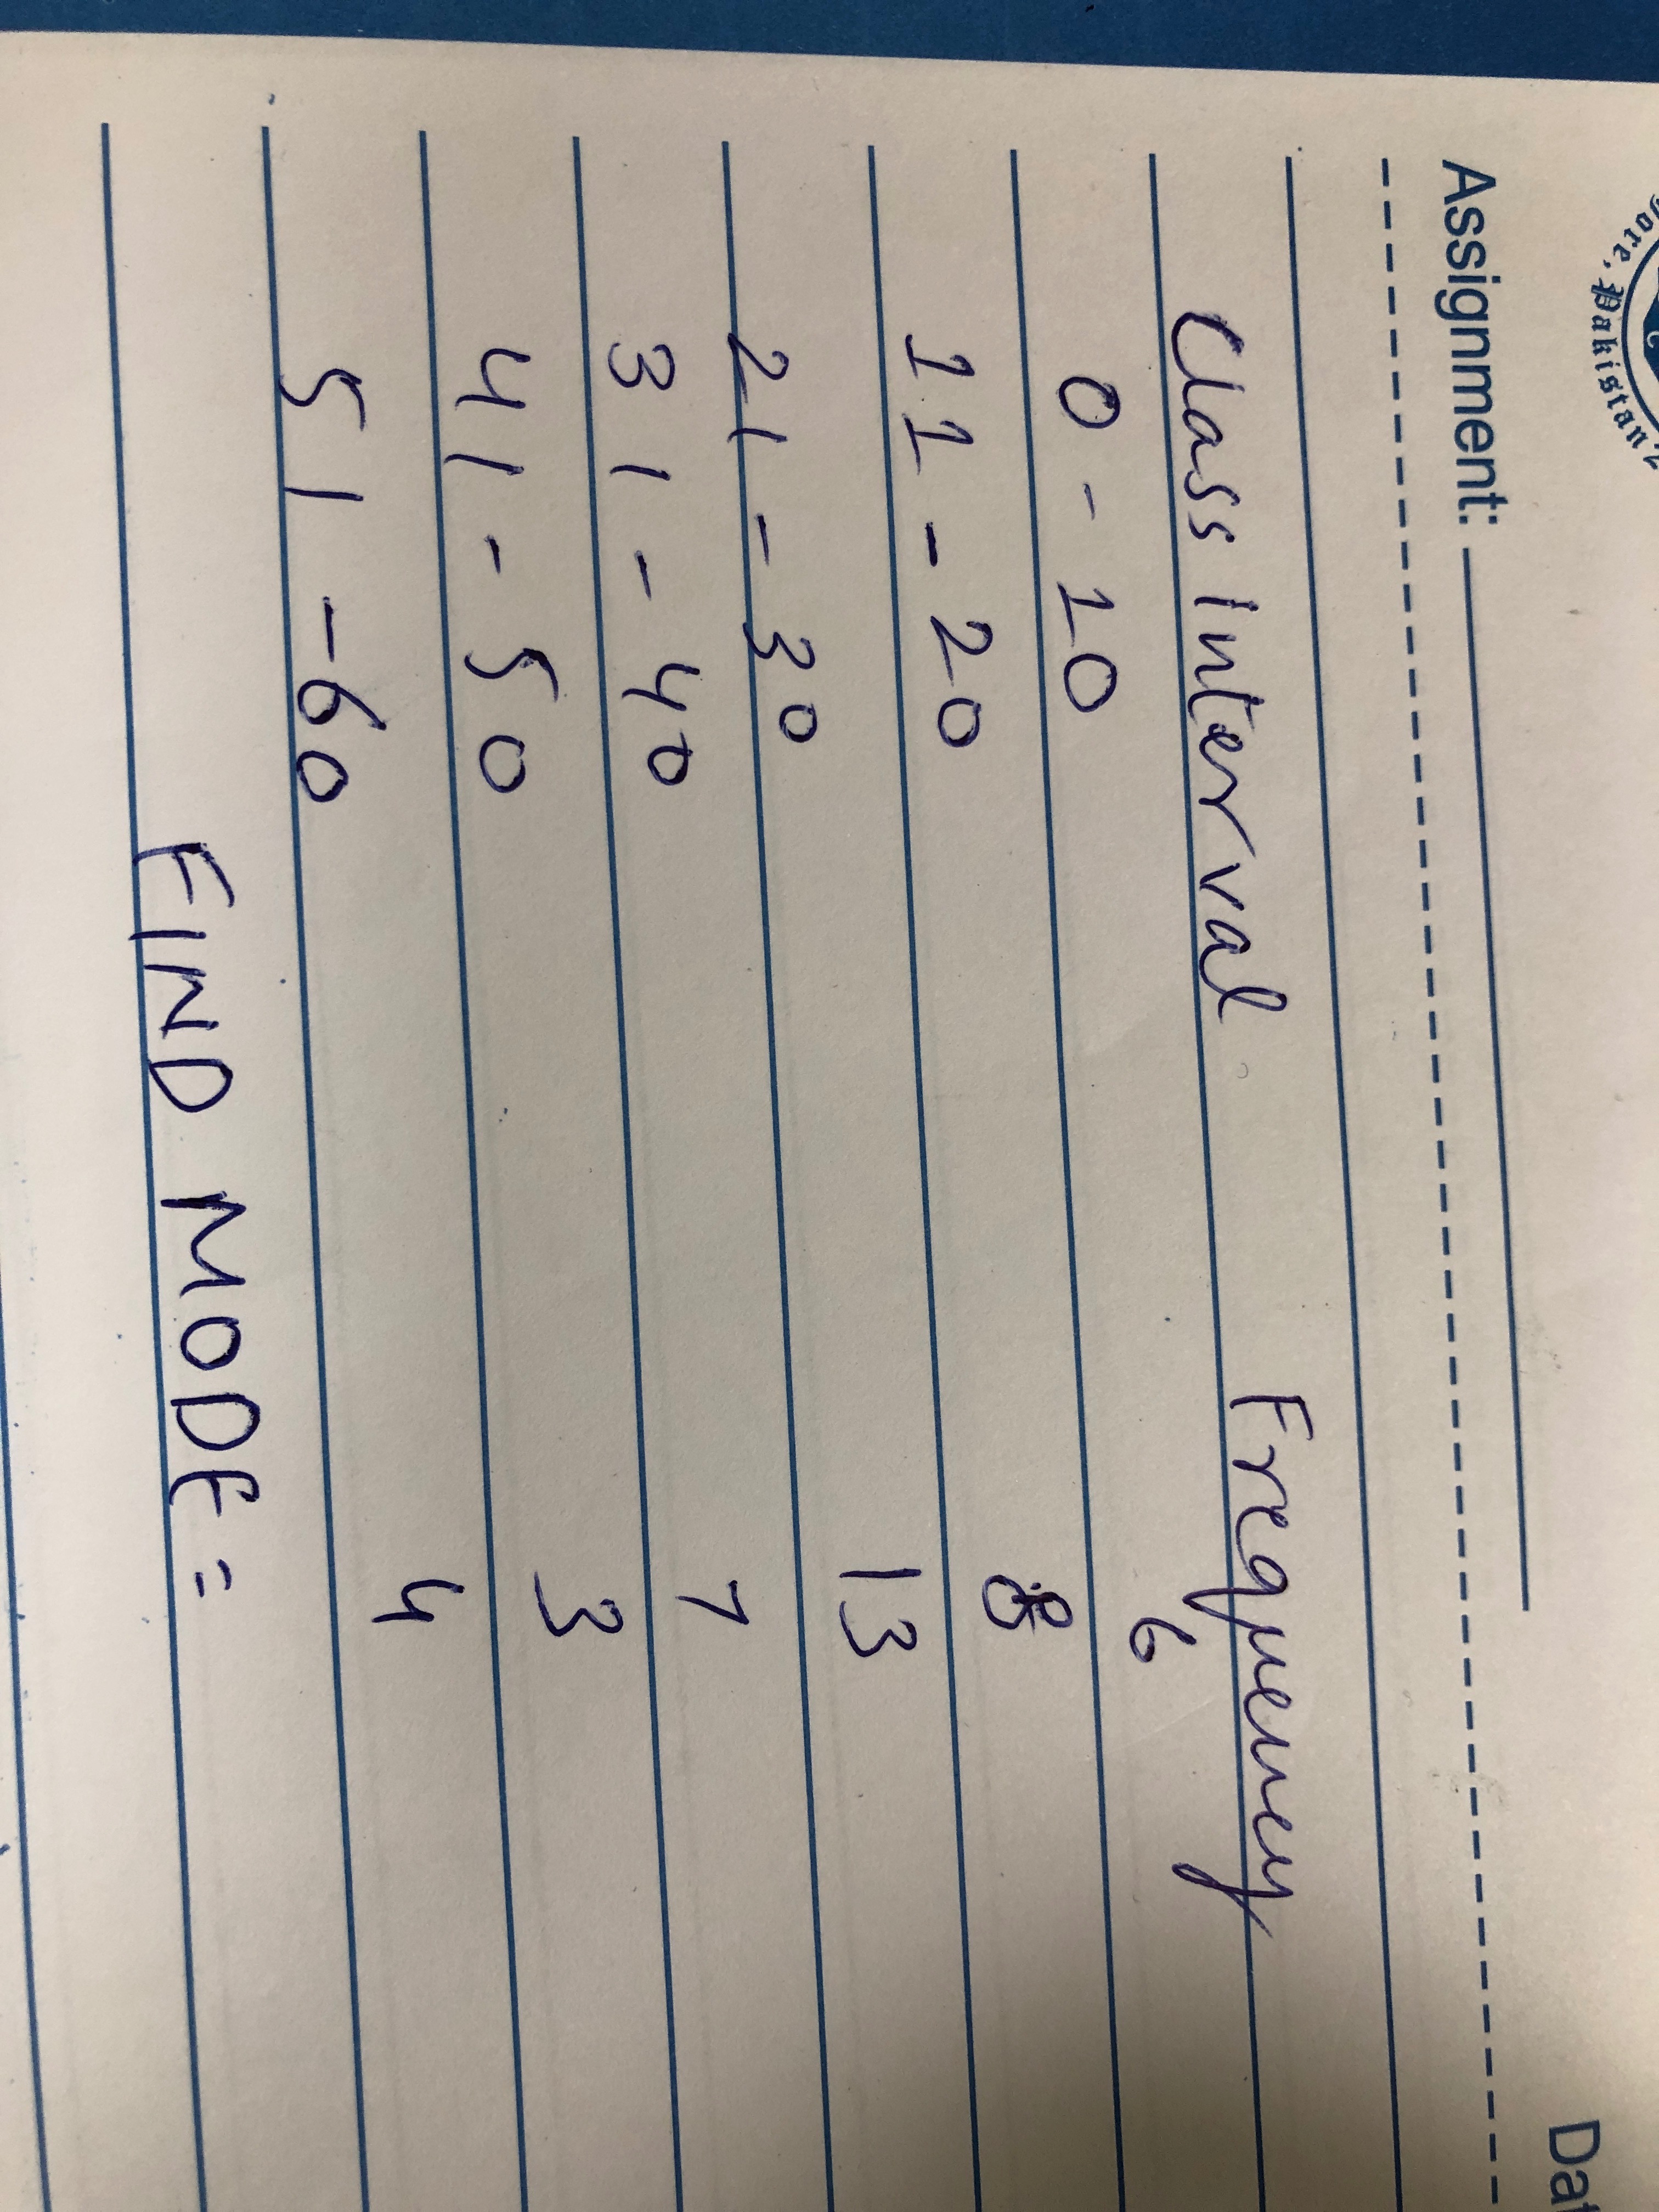 Pakistan
Assignment:
Class Interval Frequency
0 - 10 6
11 - 20 8
21 - 30 13
31 - 40 7
41 - 50 3
51 - 60 4
FIND MODE =